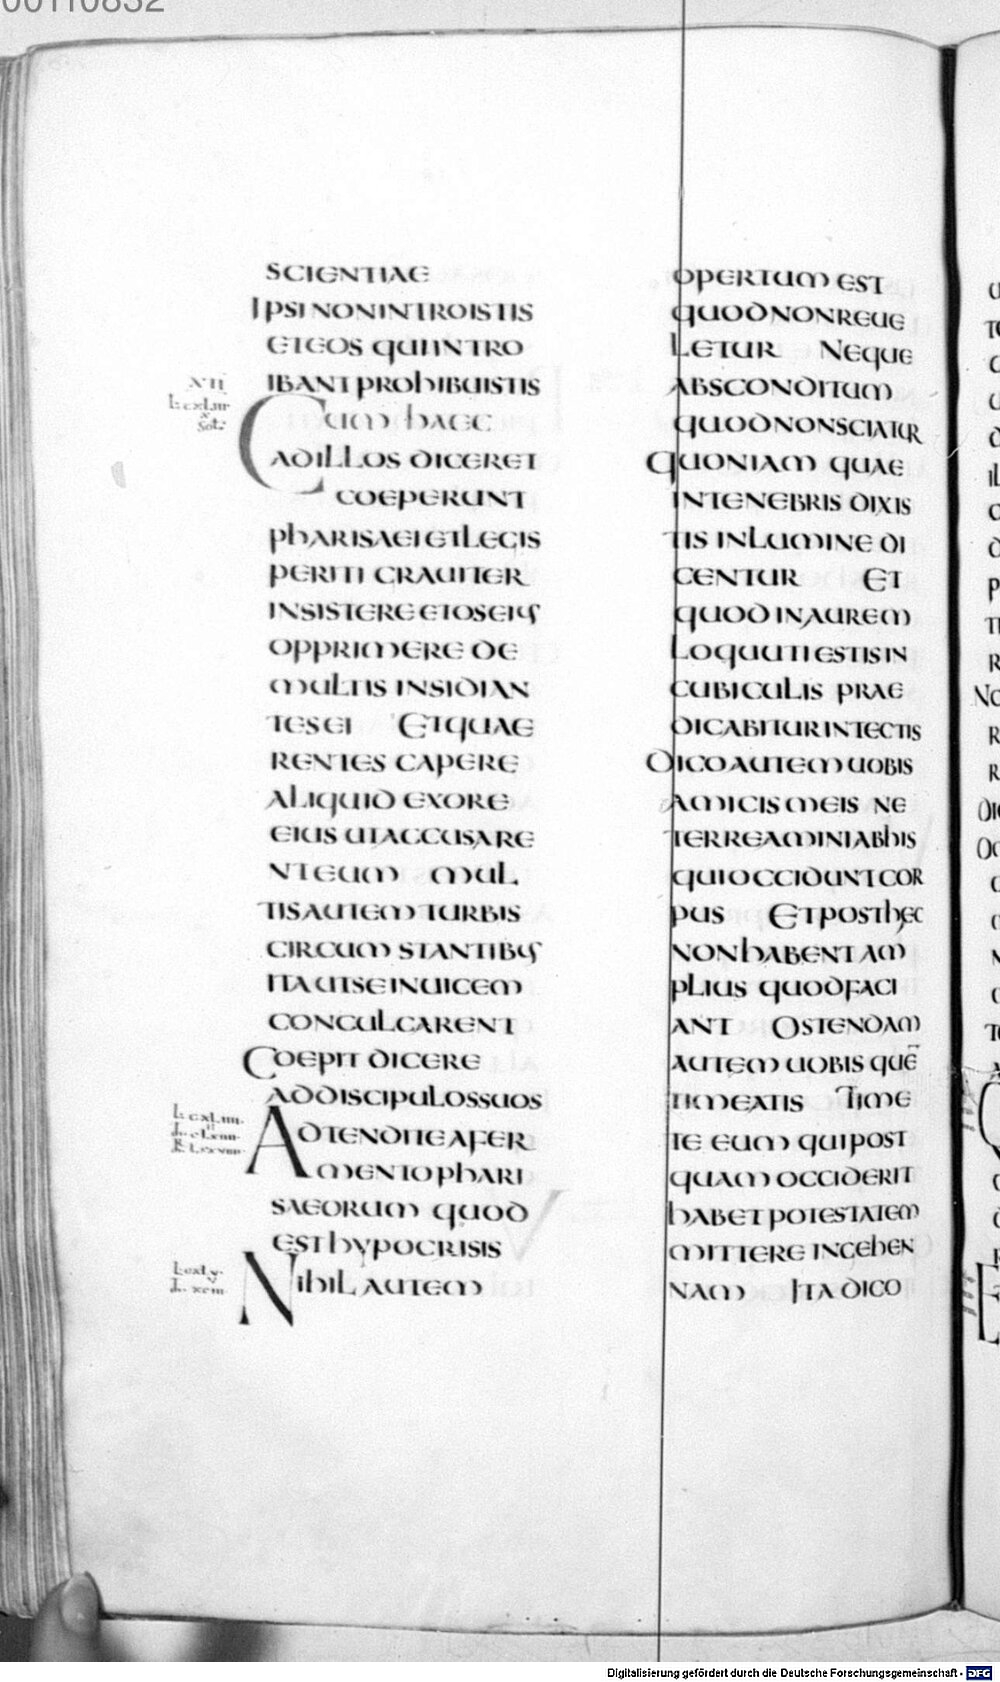 00110832
SCIENTIAE
IPSI NON INTROISTIS
ET EOS QUI INTRO
IBANT PROHIBUISTIS
XII
CUM HAEC
AD ILLOS DICERET
COEPERUNT
PHARISAEI ET LEGIS
PERITI GRAUITER
INSISTERE ET OS EIUS
OPPRIMERE DE
MULTIS INSIDIAN
TES EI ET QUAE
RENTES CAPERE
ALIQUID EX ORE
EIUS UT ACCUSARE
NT EUM MUL
TIS AUTEM TURBIS
CIRCUMSTANTIBUS
ITA UT SE INUICEM
CONCULCARENT
COEPIT DICERE
AD DISCIPULOS SUOS
ADTENDITE A FER
MENTO PHARI
SAEORUM QUOD
EST HYPOCRISIS
NIHIL AUTEM
OPERTUM EST
QUOD NON REUE
LETUR NEQUE
ABSCONDITUM
QUOD NON SCIATUR
QUONIAM QUAE
IN TENEBRIS DIXIS
TIS IN LUMINE DI
CENTUR ET
QUOD IN AUREM
LOQUUTI ESTIS IN
CUBICULIS PRAE
DICABITUR IN TECTIS
DICO AUTEM UOBIS
AMICIS MEIS NE
TERREAMINI AB HIS
QUI OCCIDUNT COR
PUS ET POST HEC
NON HABENT AM
PLIUS QUOD FACI
ANT OSTENDAM
AUTEM UOBIS QUĒ
TIMEATIS TIME
TE EUM QUI POST
QUAM OCCIDERIT
HABET POTESTATEM
MITTERE IN GEHEN
NAM ITA DICO
Digitalisierung gefördert durch die Deutsche Forschungsgemeinschaft - DFG